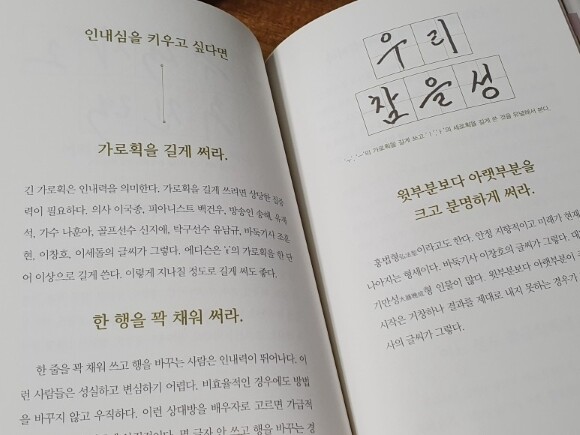 인내심을 키우고 싶다면
가로획을 길게 써라.
긴 가로획은 인내력을 의미한다. 가로획을 길게 쓰려면 상당한 집중
력이 필요하다. 의사 이국종, 피아니스트 백건우, 방송인 송해, 유재
석, 가수 나훈아, 골프선수 신지애, 탁구선수 유남규, 바둑기사 조훈
현, 이창호, 이세돌의 글씨가 그렇다. 에디슨은 't'의 가로획을 한 단
어 이상으로 길게 쓴다. 이렇게 지나칠 정도로 길게 써도 좋다.
한 행을 꽉 채워 써라.
한 줄을 꽉 채워 쓰고 행을 바꾸는 사람은 인내력이 뛰어나다. 이
런 사람들은 성실하고 변심하기 어렵다. 비효율적인 경우에도 방법
을 바꾸지 않고 우직하다. 이런 상대방을 배우자로 고르면 가급적
몇 글자 안 쓰고 행을 바꾸는 경
우리
참을성
가로획을 길게 쓰고 세로획을 길게 쓴 것을 유념해서 본다.
윗부분보다 아랫부분을
크고 분명하게 써라.
홍법형이라고도 한다. 안정 지향적이고 미래가 현재
나아지는 형세이다. 바둑기사 이창호의 글씨가 그렇다. 대
기만성大器晩成형 인물이 많다. 윗부분보다 아랫부분이
시작은 거창하나 결과를 제대로 내지 못하는 경우가
사의 글씨가 그렇다.